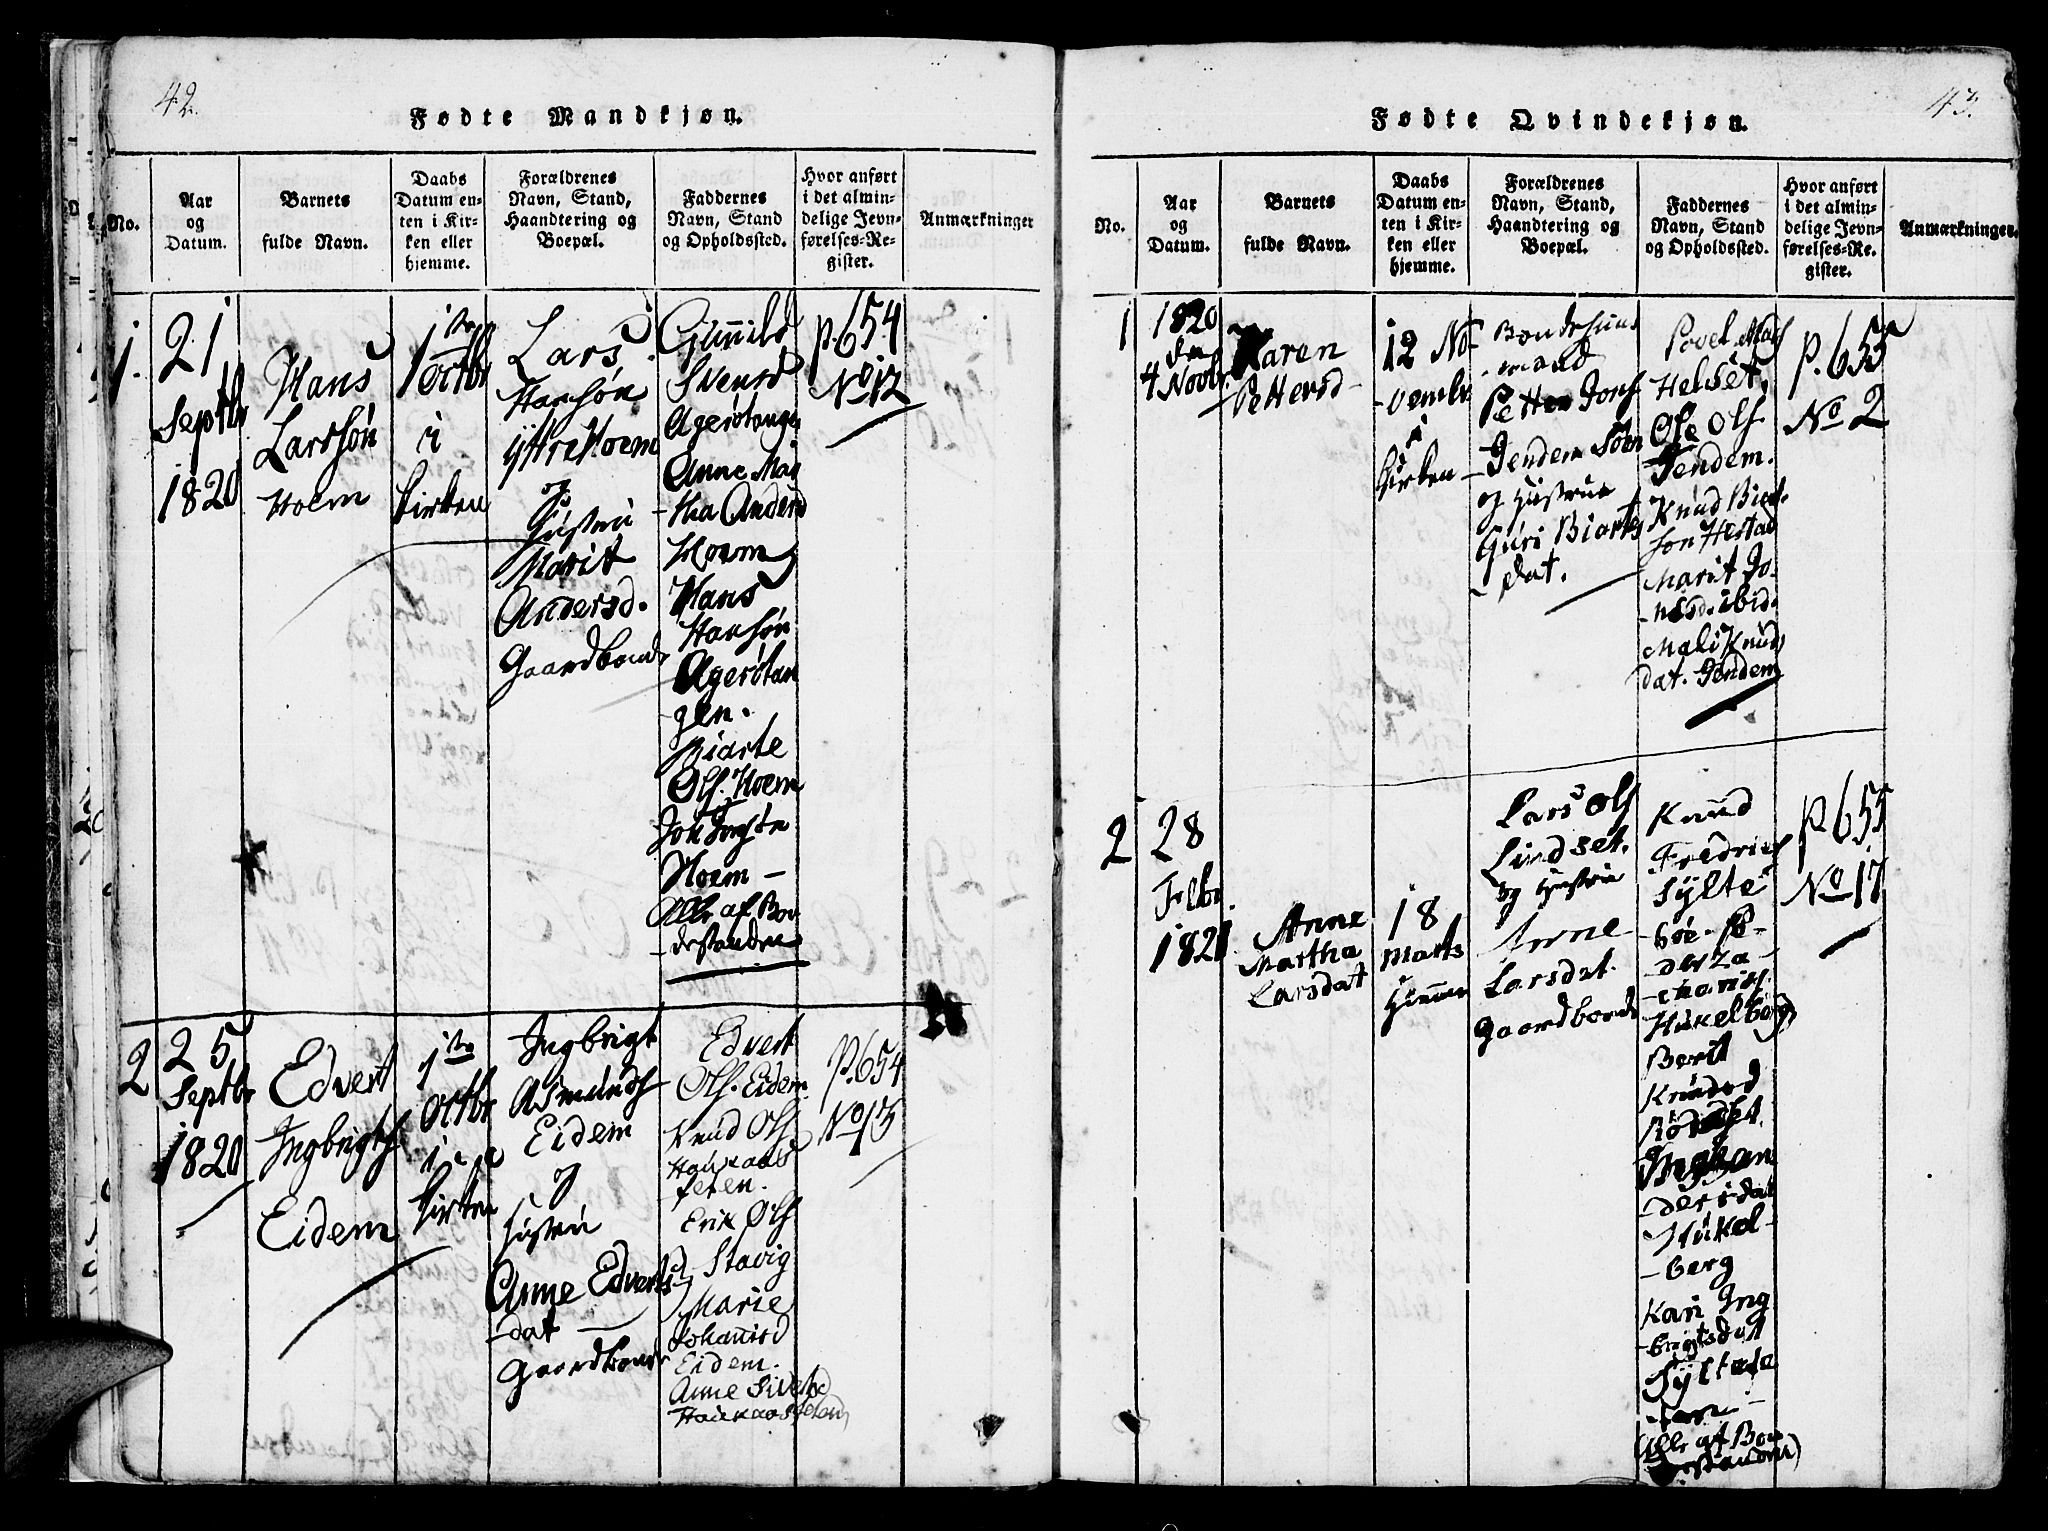 42.
Fødte Mandkjøn.
No.
Aar
og
Datum.
Barnets
fulde Navn.
Daabs
Datum en-
ten i Kir-
ken eller
hjemme.
Forældrenes
Navn, Stand,
Haandtering og
Boepæl.
Faddernes
Navn, Stand
og Opholdssted.
Hvor anført
i det almin-
delige Jevn-
førelses-Re-
gister.
Anmærkninger
1.
21
Septbr
1820
Hans
Larssøn
Hoem
1ste
octbr
i
Kirken
Lars
Hansøn
Yttre Hoem
og
Hustru
Marit
Andersd.
Gaardbonde
Gunnild
Svensd
Agerøtangen
Anne Mar
tha Andersd
Hoem
Hans
Hansøn
Agerøtan
gen.
Biarte
Ols. Hoem
Hoem -
Alle af Bon
destanden
p. 654
No 12
2
25
Septbr
1820
Edvert
Ingbrigts
Eidem
1ste
Octbr
i
Kirken
Ingbrigt
Asmunds
Eidem
og
Hustru
Anne Edverts
-dat
Gaardbonde
Edvert
Ols. Eidem
Knud Ols
Haukaas
seten.
Erik Ols
Stavig
Marie
Johannsd
Eidem.
Anne Sivertsd
Haukaasseten
P. 654
No 13
43.
Fødte Qvindekjøn.
No.
Aar
og
Datum.
Barnets
fulde Navn.
Daabs
Datum en-
ten i Kir-
ken eller
hjemme.
Forældrenes
Navn, Stand,
Haandtering og
Boepæl.
Faddernes
Navn, Stand
og Opholdssted.
Hvor anført
i det almin-
delige Jevn-
førelses-Re-
gister.
Anmærkninger.
1
1820
den
4 Novbr.
Karen
Pettersd
12 No-
-vembr
i
Kirken
Bondehuus
mand
Petter Jons
Jendem Søen
og Hustrue
Guri Biarts
dat.
Povel
Helset,
Ole Ols
Jendem.
Knud
son Herstad
Marit Jo-
-nsd. ibid.
Mali Knud
dat. Jendem
P. 655
No 2
2
28
Febr.
1821
Anne
Martha
Larsdat
18
Marts
Hiemme
Lars Ols
Lindset.
og Hustrue
Anne
Larsdat.
Gaardbonde
Knud
Fredrics
Sylte
-der Za-
-charis.
Hukelberg
Berit
Knudsd
-der s dat
Hukel-
-berg
Kari Ing
-brigtsdat
Sylte
(Alle af Bon
destanden)
P. 655
No 17